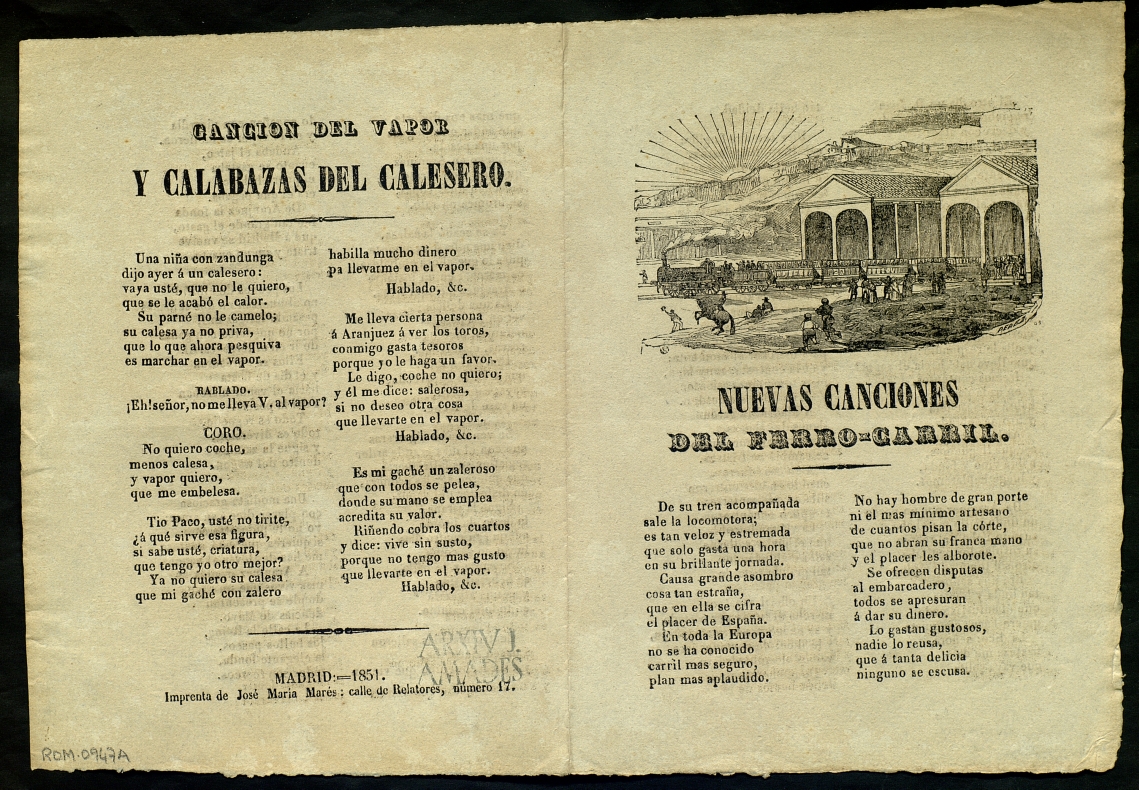 CANCION DEL VAPOR
Y CALABAZAS DEL CALESERO.
Una niña con zandunga
dijo ayer á un calesero:
vaya usté, que no le quiero,
que se le acabó el calor.
Su parné no le camelo;
su calesa ya no priva,
que lo que ahora pesquiva
es marchar en el vapor.
HABLADO.
¡Eh! señor, no me lleva V. al vapor?
CORO.
No quiero coche,
menos calesa,
y vapor quiero,
que me embelesa.
Tio Paco, usté no tirite,
¿á qué sirve esa figura,
si sabe usté, criatura,
que tengo yo otro mejor?
Ya no quiero su calesa
que mi gaché con zalero
habilla mucho dinero
pa llevarme en el vapor.
Hablado, &c.
Me lleva cierta persona
á Aranjuez á ver los toros,
conmigo gasta tesoros
porque yo le haga un favor.
Le digo, coche no quiero;
y él me dice: salerosa,
si no deseo otra cosa
que llevarte en el vapor.
Hablado, &c.
Es mi gaché un zaleroso
que con todos se pelea,
donde su mano se emplea
acredita su valor.
Riñendo cobra los cuartos
y dice: vive sin susto,
porque no tengo mas gusto
que llevarte en el vapor.
Hablado, &c.
ARXIV J.
AMADES
MADRID:=1851.
Imprenta de José Maria Marés: calle de Relatores, número 17.
ROM-0947A
NUEVAS CANCIONES
DEL FERRO-CARRIL.
De su tren acompañada
sale la locomotora;
es tan veloz y estremada
que solo gasta una hora
en su brillante jornada.
Causa grande asombro
cosa tan estraña,
que en ella se cifra
el placer de España.
En toda la Europa
no se ha conocido
carril mas seguro,
plan mas aplaudido.
No hay hombre de gran porte
ni el mas mínimo artesano
de cuantos pisan la córte,
que no abran su franca mano
y el placer les alborote.
Se ofrecen disputas
al embarcadero,
todos se apresuran
á dar su dinero.
Lo gastan gustosos,
nadie lo reusa,
que á tanta delicia
ninguno se escusa.